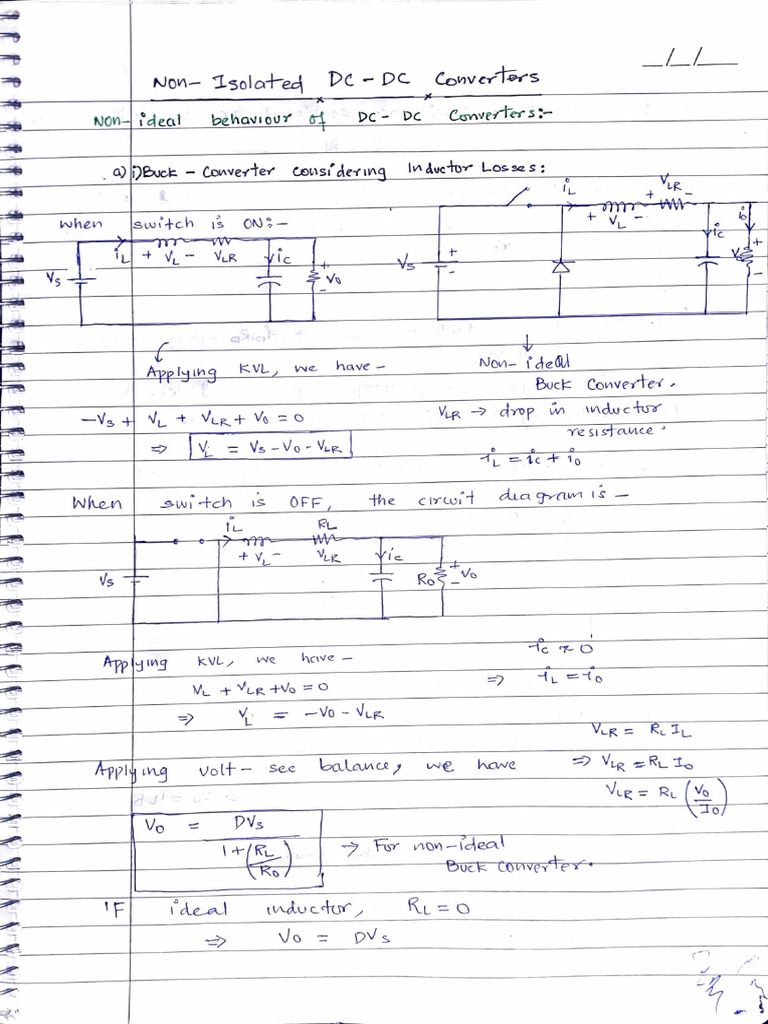 _/_/_
Non-Isolated DC-DC Converters
Non-ideal behaviour of DC-DC Converters:-
a) i) Buck-Converter considering Inductor Losses:
when switch is ON:-
iL + VL - VLR
iC
Vs
+ Vo -
iL + VLR -
+ VL -
iC
io
Vs + -
+ Vo -
Applying KVL, we have -
Non-ideal
Buck Converter.
-Vs + VL + VLR + Vo = 0
VLR → drop in inductor
resistance.
⇒ VL = Vs - Vo - VLR
iL = iC + io
When switch is OFF, the circuit diagram is -
iL RL
+ VL - VLR iC
Vs
Ro + Vo -
iC ≈ 0
Applying KVL, we have -
VL + VLR + Vo = 0
⇒ iL = io
⇒ VL = -Vo - VLR
VLR = RL IL
Applying volt-sec balance, we have
⇒ VLR = RL Io
VLR = RL (Vo/Io)
Vo = DVs / 1+(RL/Ro)
→ For non-ideal
Buck Converter.
IF ideal inductor, RL = 0
⇒ Vo = DVs